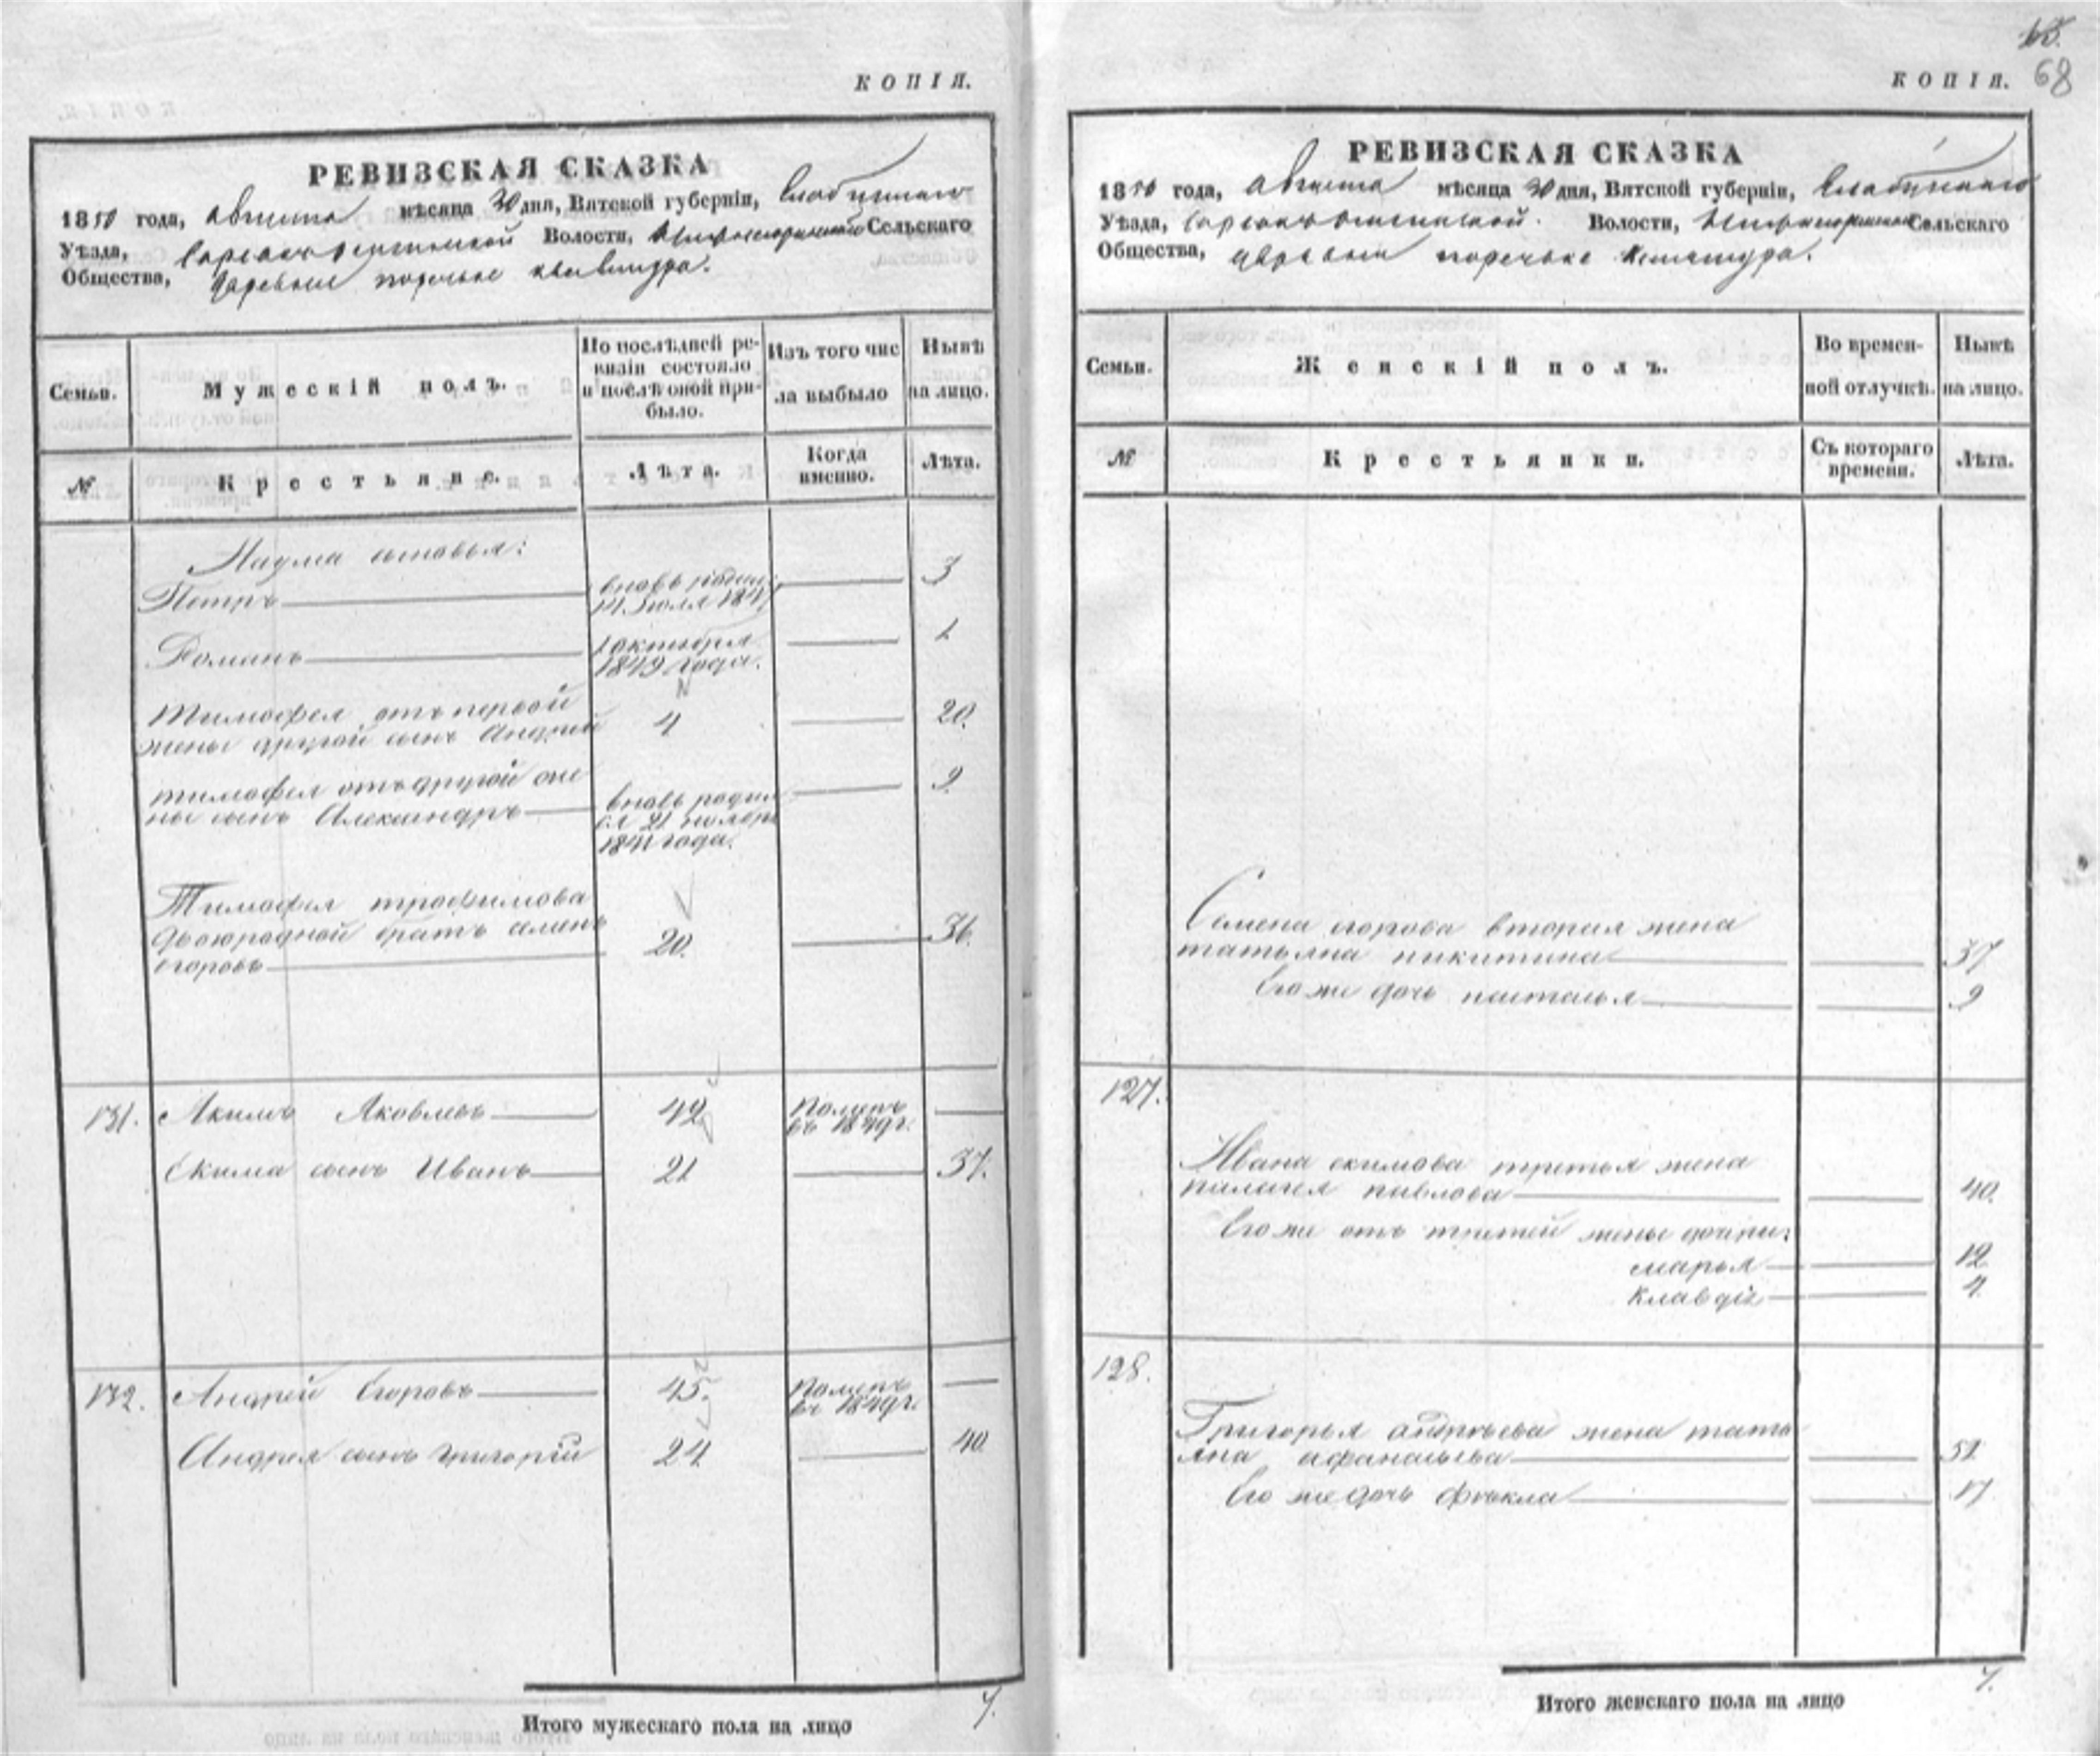 КОПІЯ.
РЕВИЗСКАЯ СКАЗКА
1850 года, Августа мѣсяца 30 дня, Вятской губерніи,
Уѣзда, Волости, Сельскаго
Общества,
Семьи.
Мужескій полъ.
По послѣдней ре-
визіи состояло
и послѣ оной при-
было.
Изъ того чис
ла выбыло
Нынѣ
на лицо.
№
Крестьяне.
Лѣта.
Когда
именно.
Лѣта.
Наума сыновья:
Петръ вновь родил. 3
14 Іюля 1847
Романъ 1 октября 1
1849 года.
Тимофея отъ первой
жены другой сынъ Андрей 4 20.
тимофея отъ другой же 9
ны сынъ Александръ вновь родил
ся 21 ноября
1841 года.
Тимофея трофимова
двоюродной братъ
егоровъ 20. 36.
131. Акимъ Яковлевъ 42 Померъ
въ 1849 г.
Екима сынъ Иванъ 21 37.
132. Андрей Егоровъ 45. Померъ
въ 1849 г.
Андрея сынъ григорій 24 40
Итого мужескаго пола на лицо 7.
15.
КОПІЯ. 68
РЕВИЗСКАЯ СКАЗКА
1850 года, Августа мѣсяца 30 дня, Вятской губерніи,
Уѣзда, Волости, Сельскаго
Общества,
Семьи.
Женскій полъ.
Во времен-
ной отлучкѣ.
Нынѣ
на лицо.
№
Крестьянки.
Съ котораго
времени.
Лѣта.
Семена егорова вторая жена
татьяна никитина 37
Его же дочь настасья 9
127.
Ивана екимова третья жена
пилагея павлова 40.
Его же отъ третей жены дочери:
марья 12
Клавдія 4
128.
Григорья андрѣева жена тать
яна афанасьева 52
Его же дочь фекла 17
Итого женскаго пола на лицо 7.